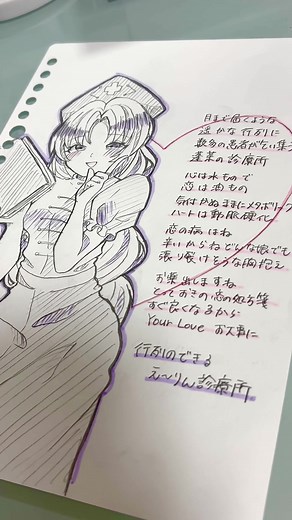 月まで届くような
遥かな行列に
数多の患者が集う
蓬莱の診療所
心は水もので
恋は油もの
気付かぬままにメタボリック
ハートは動脈硬化
恋の病はね
辛いからねどんな娘でも
張り裂けそうな胸抱え
お薬出しますね
とっておきの恋の処方箋
すぐ良くなるから
Your Love お大事に
行列のできる
え～りん診療所